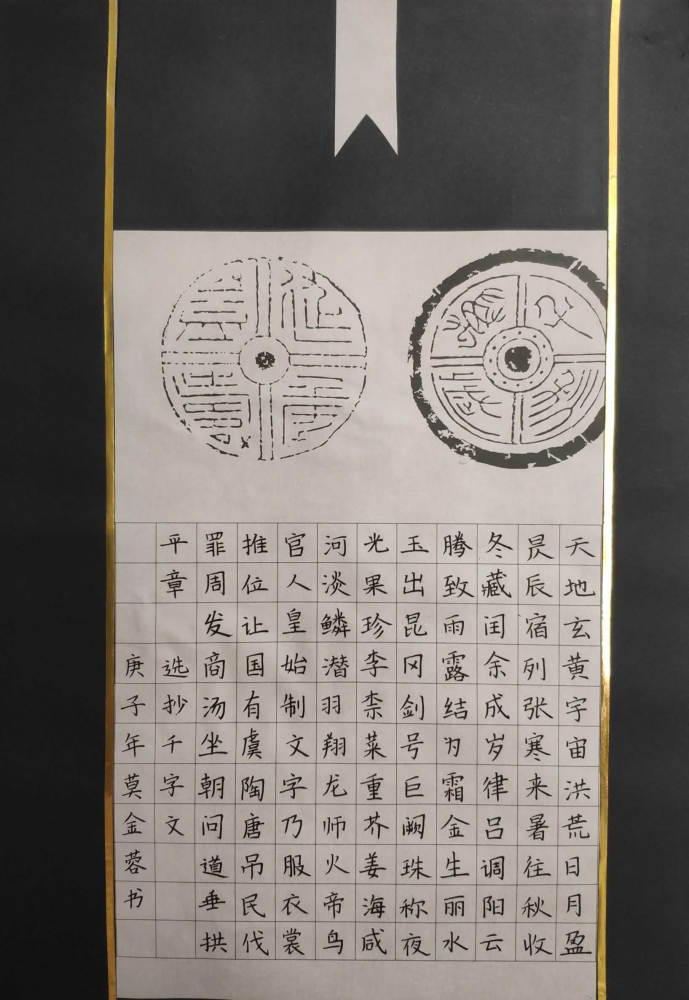 天地玄黄宇宙洪荒日月盈
昃辰宿列张寒来暑往秋收
冬藏闰余成岁律吕调阳云
腾致雨露结为霜金生丽水
玉出昆冈剑号巨阙珠称夜
光果珍李柰菜重芥姜海咸
河淡鳞潜羽翔龙师火帝鸟
官人皇始制文字乃服衣裳
推位让国有虞陶唐吊民伐
罪周发商汤坐朝问道垂拱
平章 选抄千字文
庚子年莫金蓉书